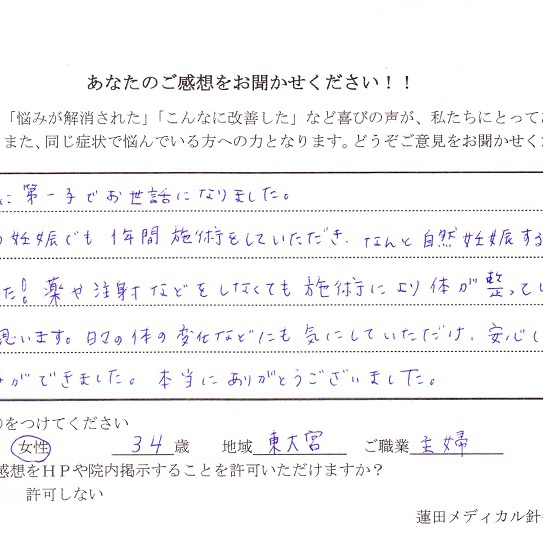 あなたのご感想をお聞かせください！！
「悩みが解消された」「こんなに改善した」など喜びの声が、私たちにとって
また、同じ症状で悩んでいる方への力となります。どうぞご意見をお聞かせく
に第一子でお世話になりました。
の妊娠でも1年間施術をしていただき、なんと自然妊娠する
た！薬や注射などをしなくても施術により体が整ってい
思います。日々の体の変化などにも気にしていただけ、安心し
ができました。本当にありがとうございました。
をつけてください
女性 34歳 地域 東大宮 ご職業 主婦
感想をＨＰや院内掲示することを許可いただけますか？
許可しない
蓮田メディカル針